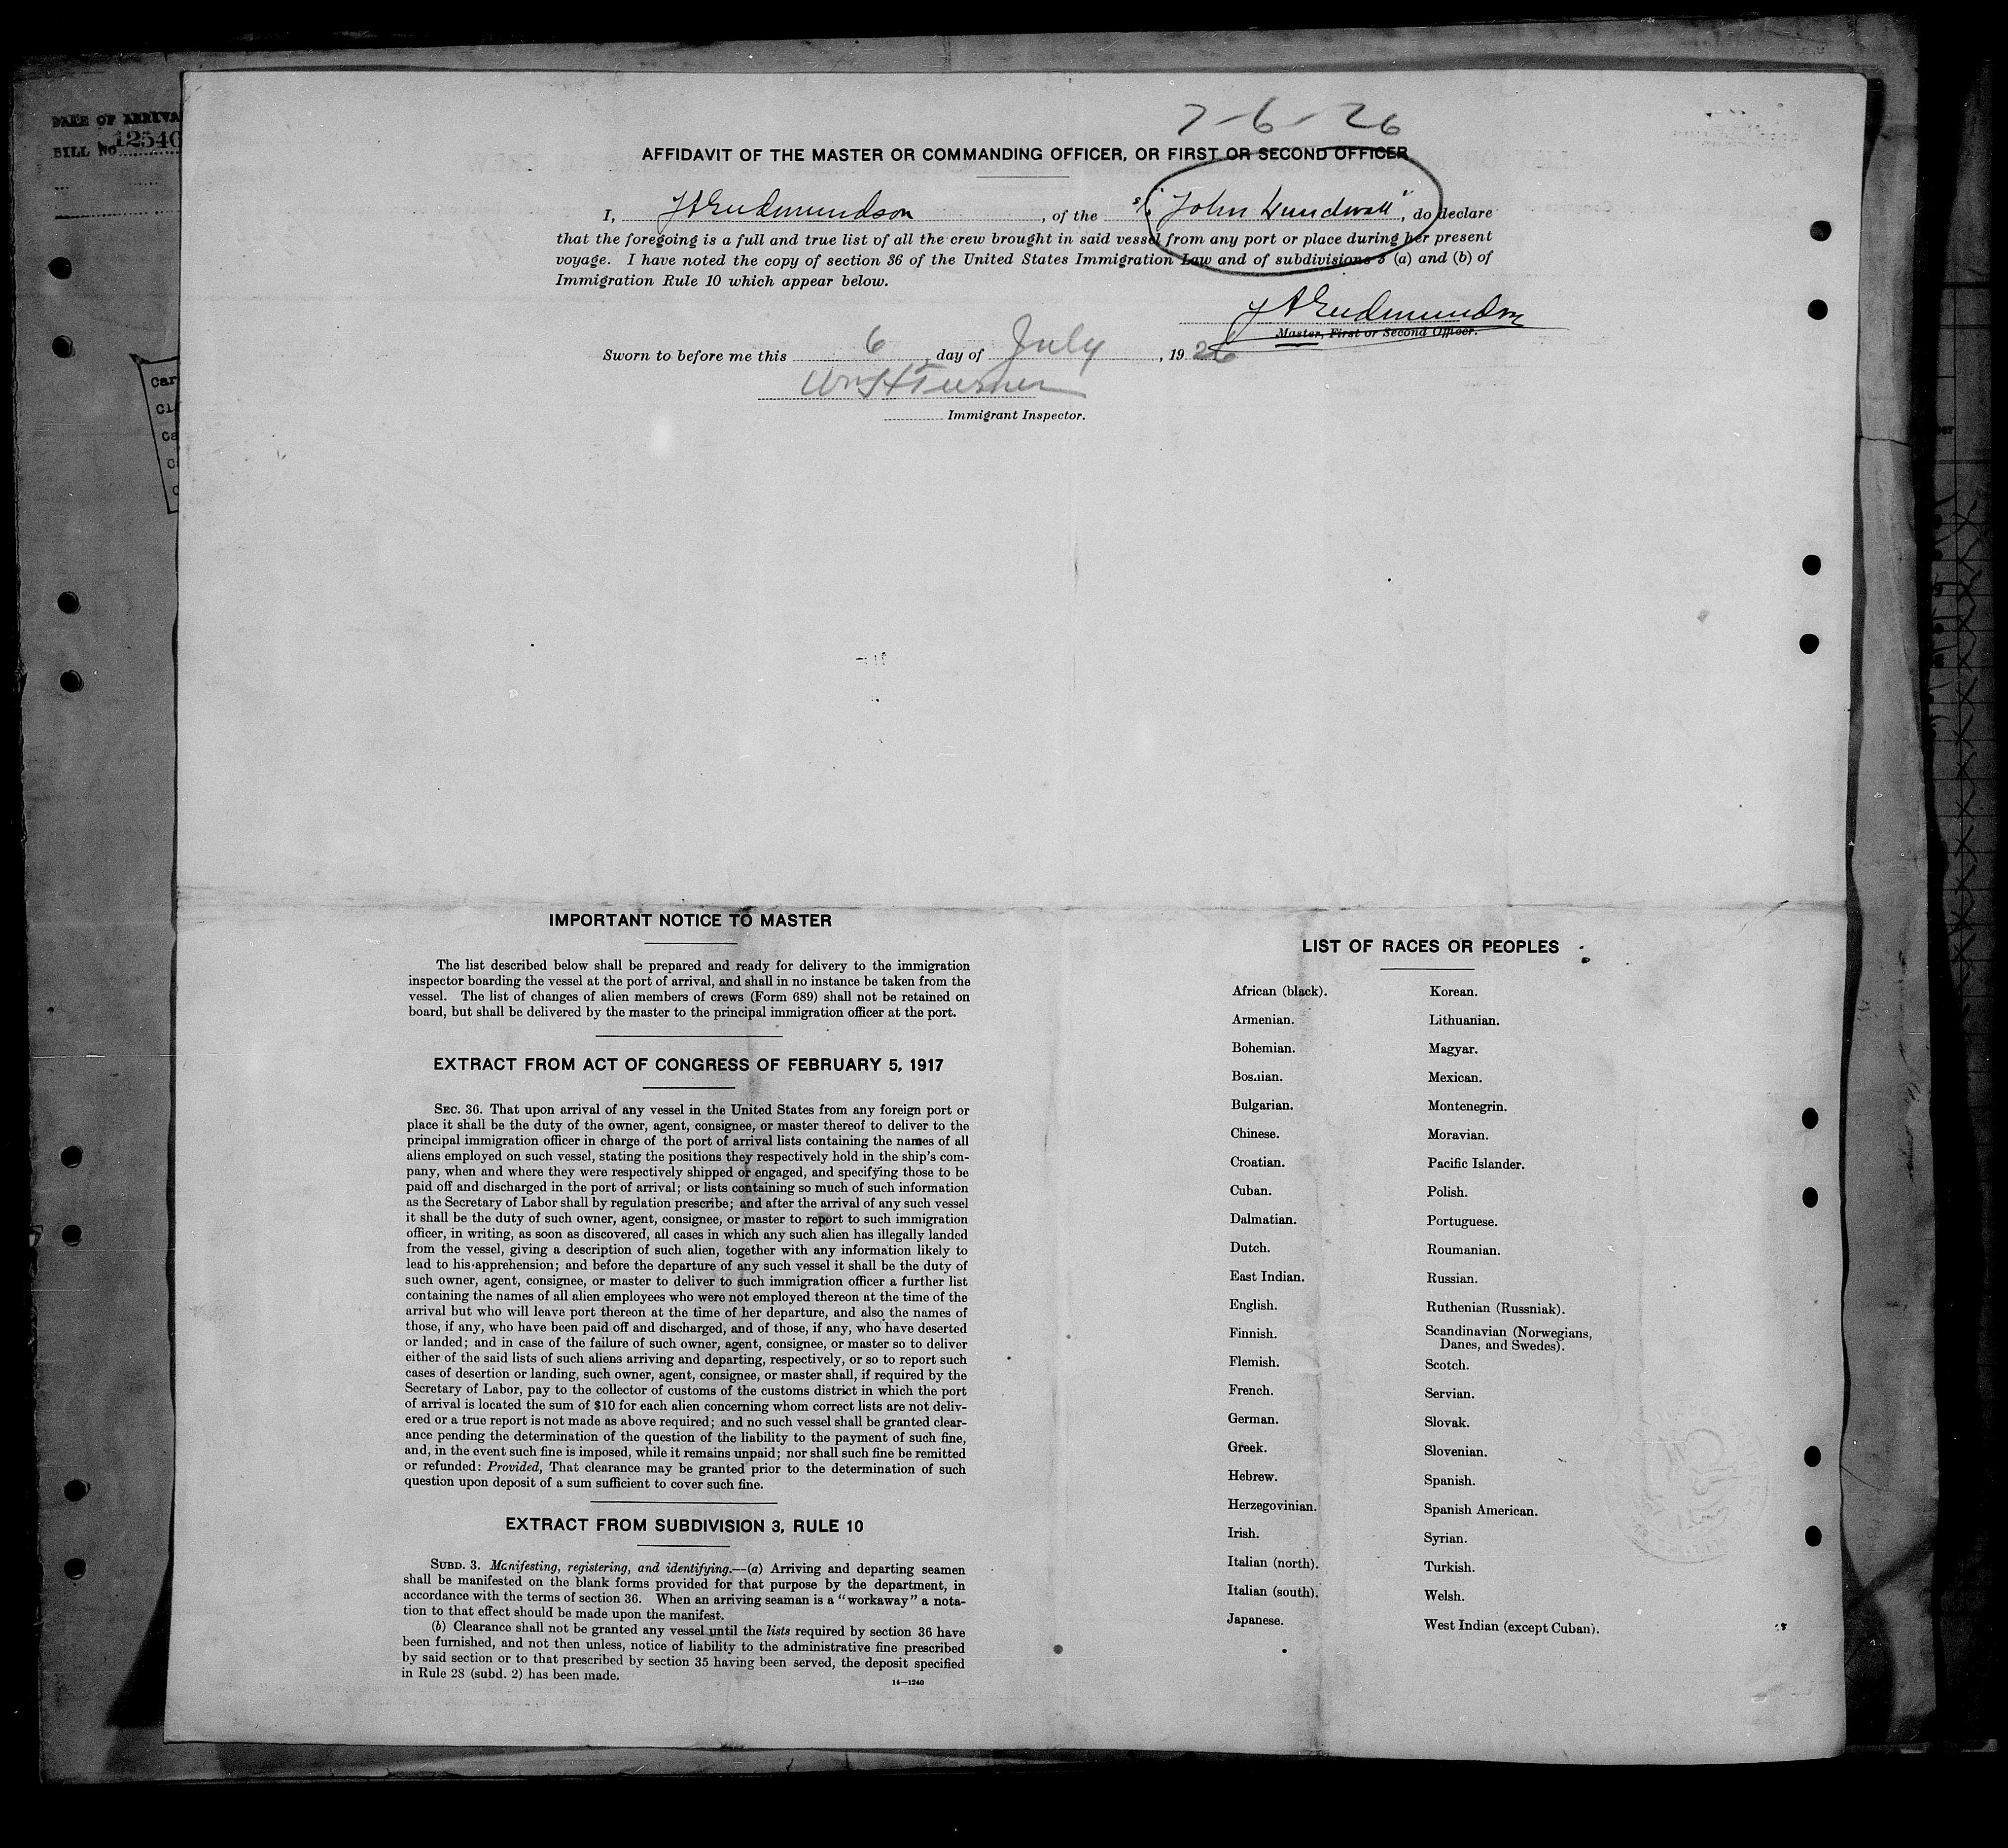 DATE OF ARRIVA
BILL No. 12546
Car
Ca
7-6-26
AFFIDAVIT OF THE MASTER OR COMMANDING OFFICER, OR FIRST OR SECOND OFFICER
I, Gudmundson, of the "John Lundvall", do declare
that the foregoing is a full and true list of all the crew brought in said vessel from any port or place during her present
voyage. I have noted the copy of section 36 of the United States Immigration Law and of subdivisions 3 (a) and (b) of
Immigration Rule 10 which appear below.
Gudmundson
Master, First or Second Officer.
Sworn to before me this 6 day of July, 1926
Wm H Turner
Immigrant Inspector.
IMPORTANT NOTICE TO MASTER
The list described below shall be prepared and ready for delivery to the immigration
inspector boarding the vessel at the port of arrival, and shall in no instance be taken from the
vessel. The list of changes of alien members of crews (Form 689) shall not be retained on
board, but shall be delivered by the master to the principal immigration officer at the port.
EXTRACT FROM ACT OF CONGRESS OF FEBRUARY 5, 1917
SEC. 36. That upon arrival of any vessel in the United States from any foreign port or
place it shall be the duty of the owner, agent, consignee, or master thereof to deliver to the
principal immigration officer in charge of the port of arrival lists containing the names of all
aliens employed on such vessel, stating the positions they respectively hold in the ship's com-
pany, when and where they were respectively shipped or engaged, and specifying those to be
paid off and discharged in the port of arrival; or lists containing so much of such information
as the Secretary of Labor shall by regulation prescribe; and after the arrival of any such vessel
it shall be the duty of such owner, agent, consignee, or master to report to such immigration
officer, in writing, as soon as discovered, all cases in which any such alien has illegally landed
from the vessel, giving a description of such alien, together with any information likely to
lead to his apprehension; and before the departure of any such vessel it shall be the duty of
such owner, agent, consignee, or master to deliver to such immigration officer a further list
containing the names of all alien employees who were not employed thereon at the time of the
arrival but who will leave port thereon at the time of her departure, and also the names of
those, if any, who have been paid off and discharged, and of those, if any, who have deserted
or landed; and in case of the failure of such owner, agent, consignee, or master so to deliver
either of the said lists of such aliens arriving and departing, respectively, or so to report such
cases of desertion or landing, such owner, agent, consignee, or master shall, if required by the
Secretary of Labor, pay to the collector of customs of the customs district in which the port
of arrival is located the sum of $10 for each alien concerning whom correct lists are not deliv-
ered or a true report is not made as above required; and no such vessel shall be granted clear-
ance pending the determination of the question of the liability to the payment of such fine,
and, in the event such fine is imposed, while it remains unpaid; nor shall such fine be remitted
or refunded: Provided, That clearance may be granted prior to the determination of such
question upon deposit of a sum sufficient to cover such fine.
EXTRACT FROM SUBDIVISION 3, RULE 10
SUBD. 3. Manifesting, registering, and identifying.—(a) Arriving and departing seamen
shall be manifested on the blank forms provided for that purpose by the department, in
accordance with the terms of section 36. When an arriving seaman is a "workaway" a nota-
tion to that effect should be made upon the manifest.
(b) Clearance shall not be granted any vessel until the lists required by section 36 have
been furnished, and not then unless, notice of liability to the administrative fine prescribed
by said section or to that prescribed by section 35 having been served, the deposit specified
in Rule 28 (subd. 2) has been made.
14—1240
LIST OF RACES OR PEOPLES
African (black).
Armenian.
Bohemian.
Bosnian.
Bulgarian.
Chinese.
Croatian.
Cuban.
Dalmatian.
Dutch.
East Indian.
English.
Finnish.
Flemish.
French.
German.
Greek.
Hebrew.
Herzegovinian.
Irish.
Italian (north).
Italian (south).
Japanese.
Korean.
Lithuanian.
Magyar.
Mexican.
Montenegrin.
Moravian.
Pacific Islander.
Polish.
Portuguese.
Roumanian.
Russian.
Ruthenian (Russniak).
Scandinavian (Norwegians,
Danes, and Swedes).
Scotch.
Servian.
Slovak.
Slovenian.
Spanish.
Spanish American.
Syrian.
Turkish.
Welsh.
West Indian (except Cuban).